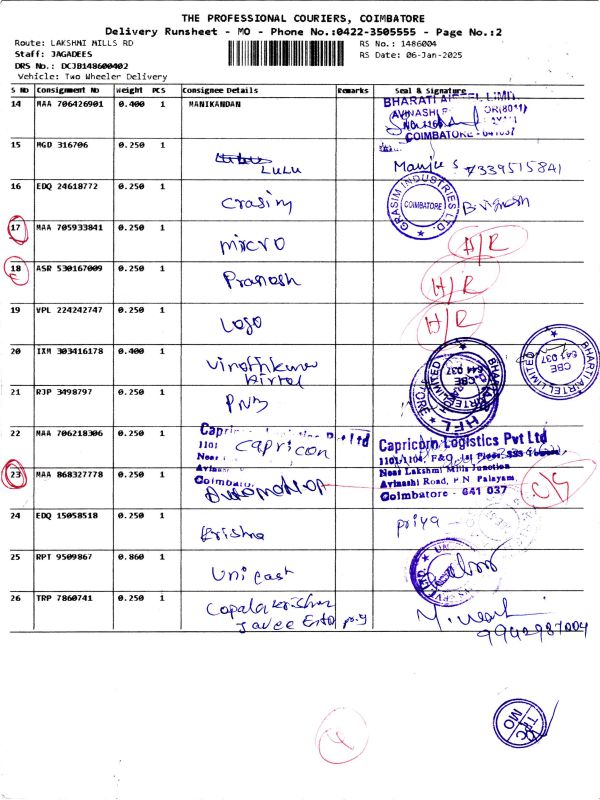 THE PROFESSIONAL COURIERS, COIMBATORE
Delivery Runsheet - MO - Phone No.:0422-3505555 - Page No.:2
Route: LAKSHMI MILLS RD
RS No.: 1486004
Staff: JAGADEES
RS Date: 06-Jan-2025
DRS No.: DCJB148600402
Vehicle: Two Wheeler Delivery
S No Consignment No Weight PCS Consignee Details Remarks Seal & Signature
14 MAA 706426901 0.400 1 MANIKANDAN
BHARATI AIRTEL LIMIT
AVINASHI R OR(8011)
COIMBATORE - 641037
15 MGD 316706 0.250 1 LULU Manju S 7339515841
16 EDQ 24618772 0.250 1 Crasim
GRASIM INDUSTRIES LTD. COIMBATORE
B. Vignesh
17 MAA 705933841 0.250 1 micro H/R
18 ASR 530167009 0.250 1 Pranash H/R
19 VPL 224242747 0.250 1 Logo H/R
20 IXM 303416178 0.400 1 Vinothkumar
Airtel
BHARTI AIRTEL LIMITED CBE 641 037
21 RJP 3498797 0.250 1 PNB
HFL
22 MAA 706218306 0.250 1 Capricon
1101
Near
Avinas
Coimbato
Capricorn Logistics Pvt Ltd
1101-1104, F&O, 1st Floor
Near Lakshmi Mills Junction
Avinashi Road, P.N. Palayam,
Coimbatore - 641 037
23 MAA 868327778 0.250 1 Automation C/S
24 EDQ 15058518 0.250 1 Krishna Priya
25 RPT 9509867 0.860 1 Unicast
26 TRP 7860741 0.250 1 Gopalakrishnan
Javee
9942987004
TPC
MO